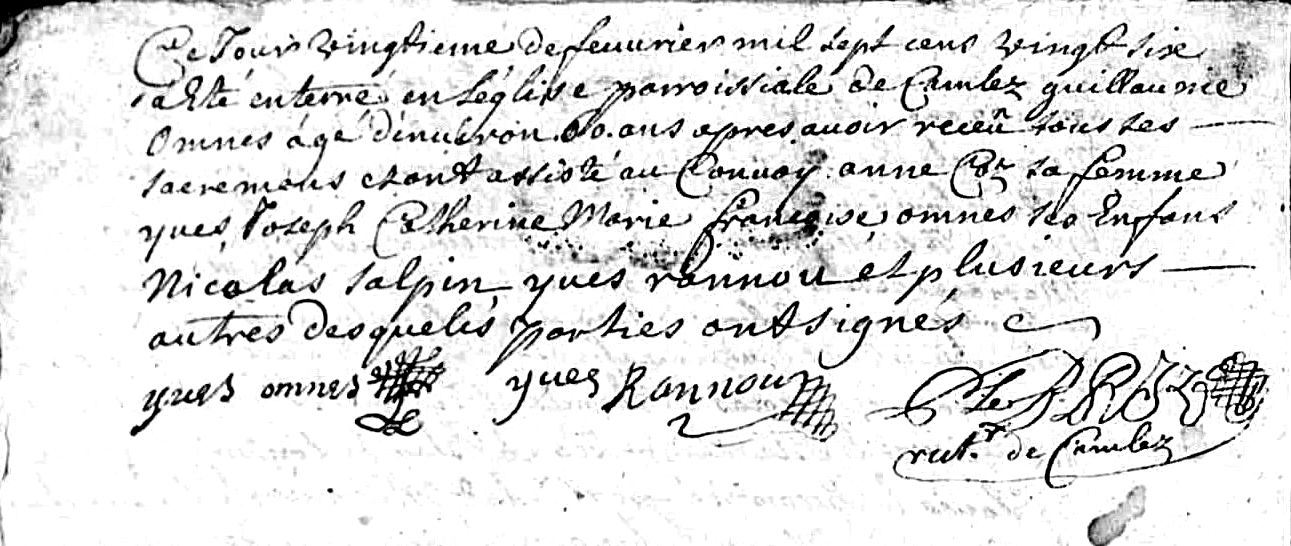 Ce Jour vingtieme de feuurier mil sept cens vingt six
a Eté enterré en L'église parroissiale de Camlez guillaume
omnes âgé d'enuiron 60. ans apres auoir receü tous ses
sacremens et ont assisté au Conuoy anne sa femme
yues, Joseph Catherine Marie françoise omnes ses Enfans
Nicolas salpin yues rannou et plusieurs
autres desquelis parties ont signés
yues omnes yues Rannou
rect.r de Camlez